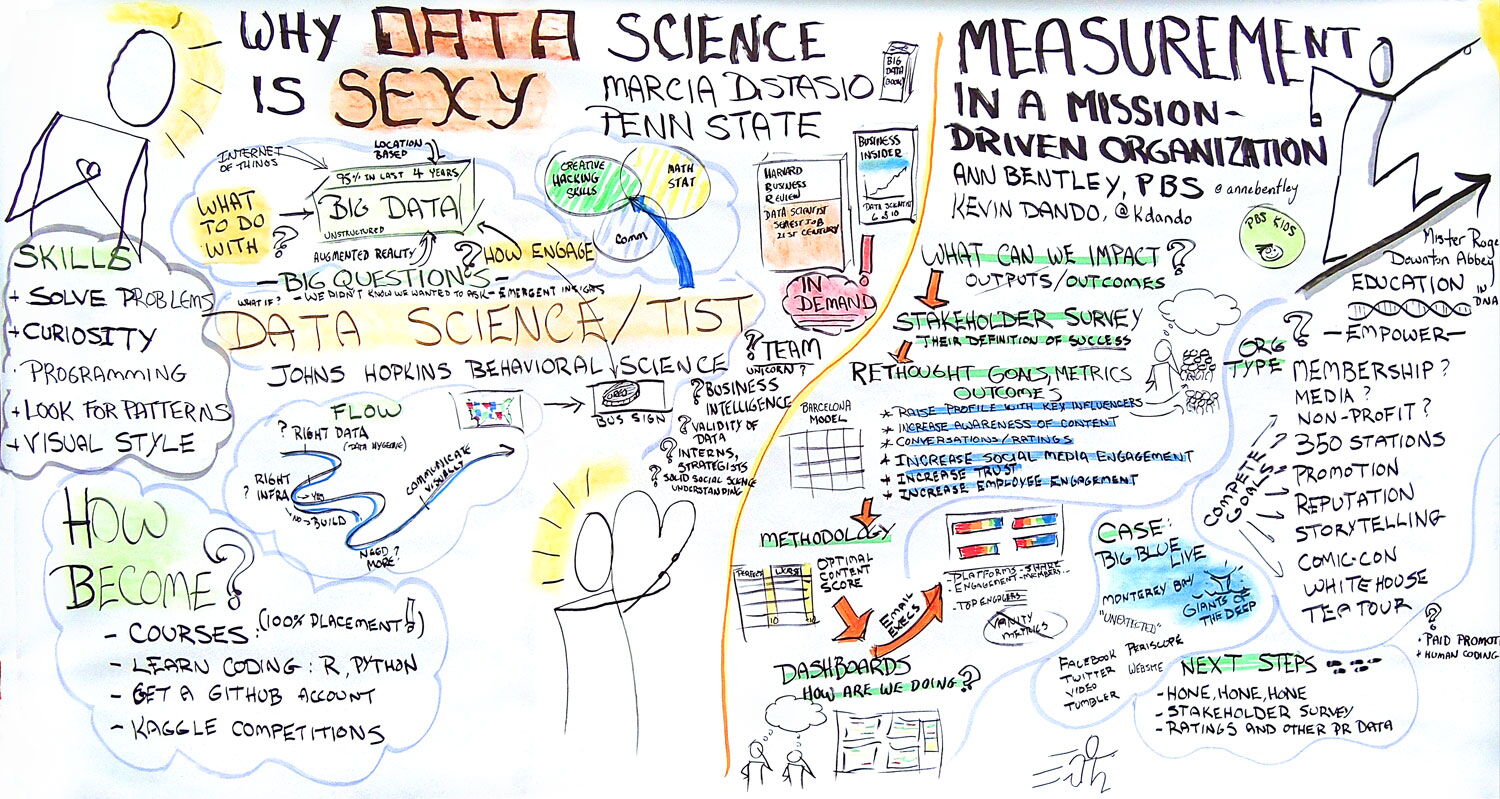 WHY DATA SCIENCE
IS SEXY
MARCIA DiSTASIO
PENN STATE
BIG
DATA
(BOOK)
INTERNET
OF THINGS
LOCATION
BASED
95% IN LAST 4 YEARS
BIG DATA
UNSTRUCTURED
AUGMENTED REALITY
WHAT
TO DO
WITH?
? HOW ENGAGE
CREATIVE
HACKING
SKILLS
MATH
STAT
Comm
HARVARD
BUSINESS
REVIEW
DATA SCIENTIST
SEXIEST JOB
21ST CENTURY
BUSINESS
INSIDER
DATA SCIENTIST
6 OF 10
IN
DEMAND
!
- BIG QUESTIONS -
WHAT IF? - WE DIDN'T KNOW WE WANTED TO ASK - EMERGENT INSIGHTS
DATA SCIENCE/TIST
JOHNS HOPKINS BEHAVIORAL SCIENCE
SKILLS
+ SOLVE PROBLEMS
+ CURIOSITY
· PROGRAMMING
+ LOOK FOR PATTERNS
+ VISUAL STYLE
FLOW
? RIGHT DATA
(DATA HYGIENE)
RIGHT
? INFRA
YES
NO → BUILD
NEED?
MORE?
COMMUNICATE
VISUALLY
BUS SIGN
? TEAM
UNICORN?
? BUSINESS
INTELLIGENCE
? VALIDITY OF
DATA
? INTERNS,
STRATEGISTS
? SOLID SOCIAL SCIENCE
UNDERSTANDING
HOW
BECOME?
- COURSES: (100% PLACEMENT!)
- LEARN CODING: R, PYTHON
- GET A GITHUB ACCOUNT
- KAGGLE COMPETITIONS
MEASUREMENT
IN A MISSION-
DRIVEN ORGANIZATION
ANN BENTLEY, PBS @annebentley
KEVIN DANDO, @kdando
PBS KIDS
WHAT CAN WE IMPACT?
OUTPUTS/OUTCOMES
STAKEHOLDER SURVEY
THEIR DEFINITION OF SUCCESS
RETHOUGHT GOALS, METRICS
OUTCOMES
* RAISE PROFILE WITH KEY INFLUENCERS
* INCREASE AWARENESS OF CONTENT
* CONVERSATIONS/RATINGS
* INCREASE SOCIAL MEDIA ENGAGEMENT
* INCREASE TRUST
* INCREASE EMPLOYEE ENGAGEMENT
BARCELONA
MODEL
METHODOLOGY
PERFECT WORST
10
OPTIMAL
CONTENT
SCORE
EMAIL
EXECS
- PLATFORMS - SHARE
- ENGAGEMENT - MEMBERS...
- TOP ENGAGERS
VANITY
METRICS
DASHBOARDS
HOW ARE WE DOING?
Downton Abbey
EDUCATION IN
DNA
- EMPOWER -
ORG?
TYPE
MEMBERSHIP?
MEDIA?
NON-PROFIT?
COMPETE
GOALS
350 STATIONS
PROMOTION
REPUTATION
STORYTELLING
COMIC-CON
WHITE HOUSE
TEA TOUR
?
+ HUMAN CODING
CASE:
BIG BLUE
LIVE
MONTEREY BAY
GIANTS OF
THE DEEP
FACEBOOK
TWITTER
VIDEO
TUMBLER
PERISCOPE
WEBSITE
NEXT STEPS
- HONE, HONE, HONE
- STAKEHOLDER SURVEY
- RATINGS AND OTHER PR DATA